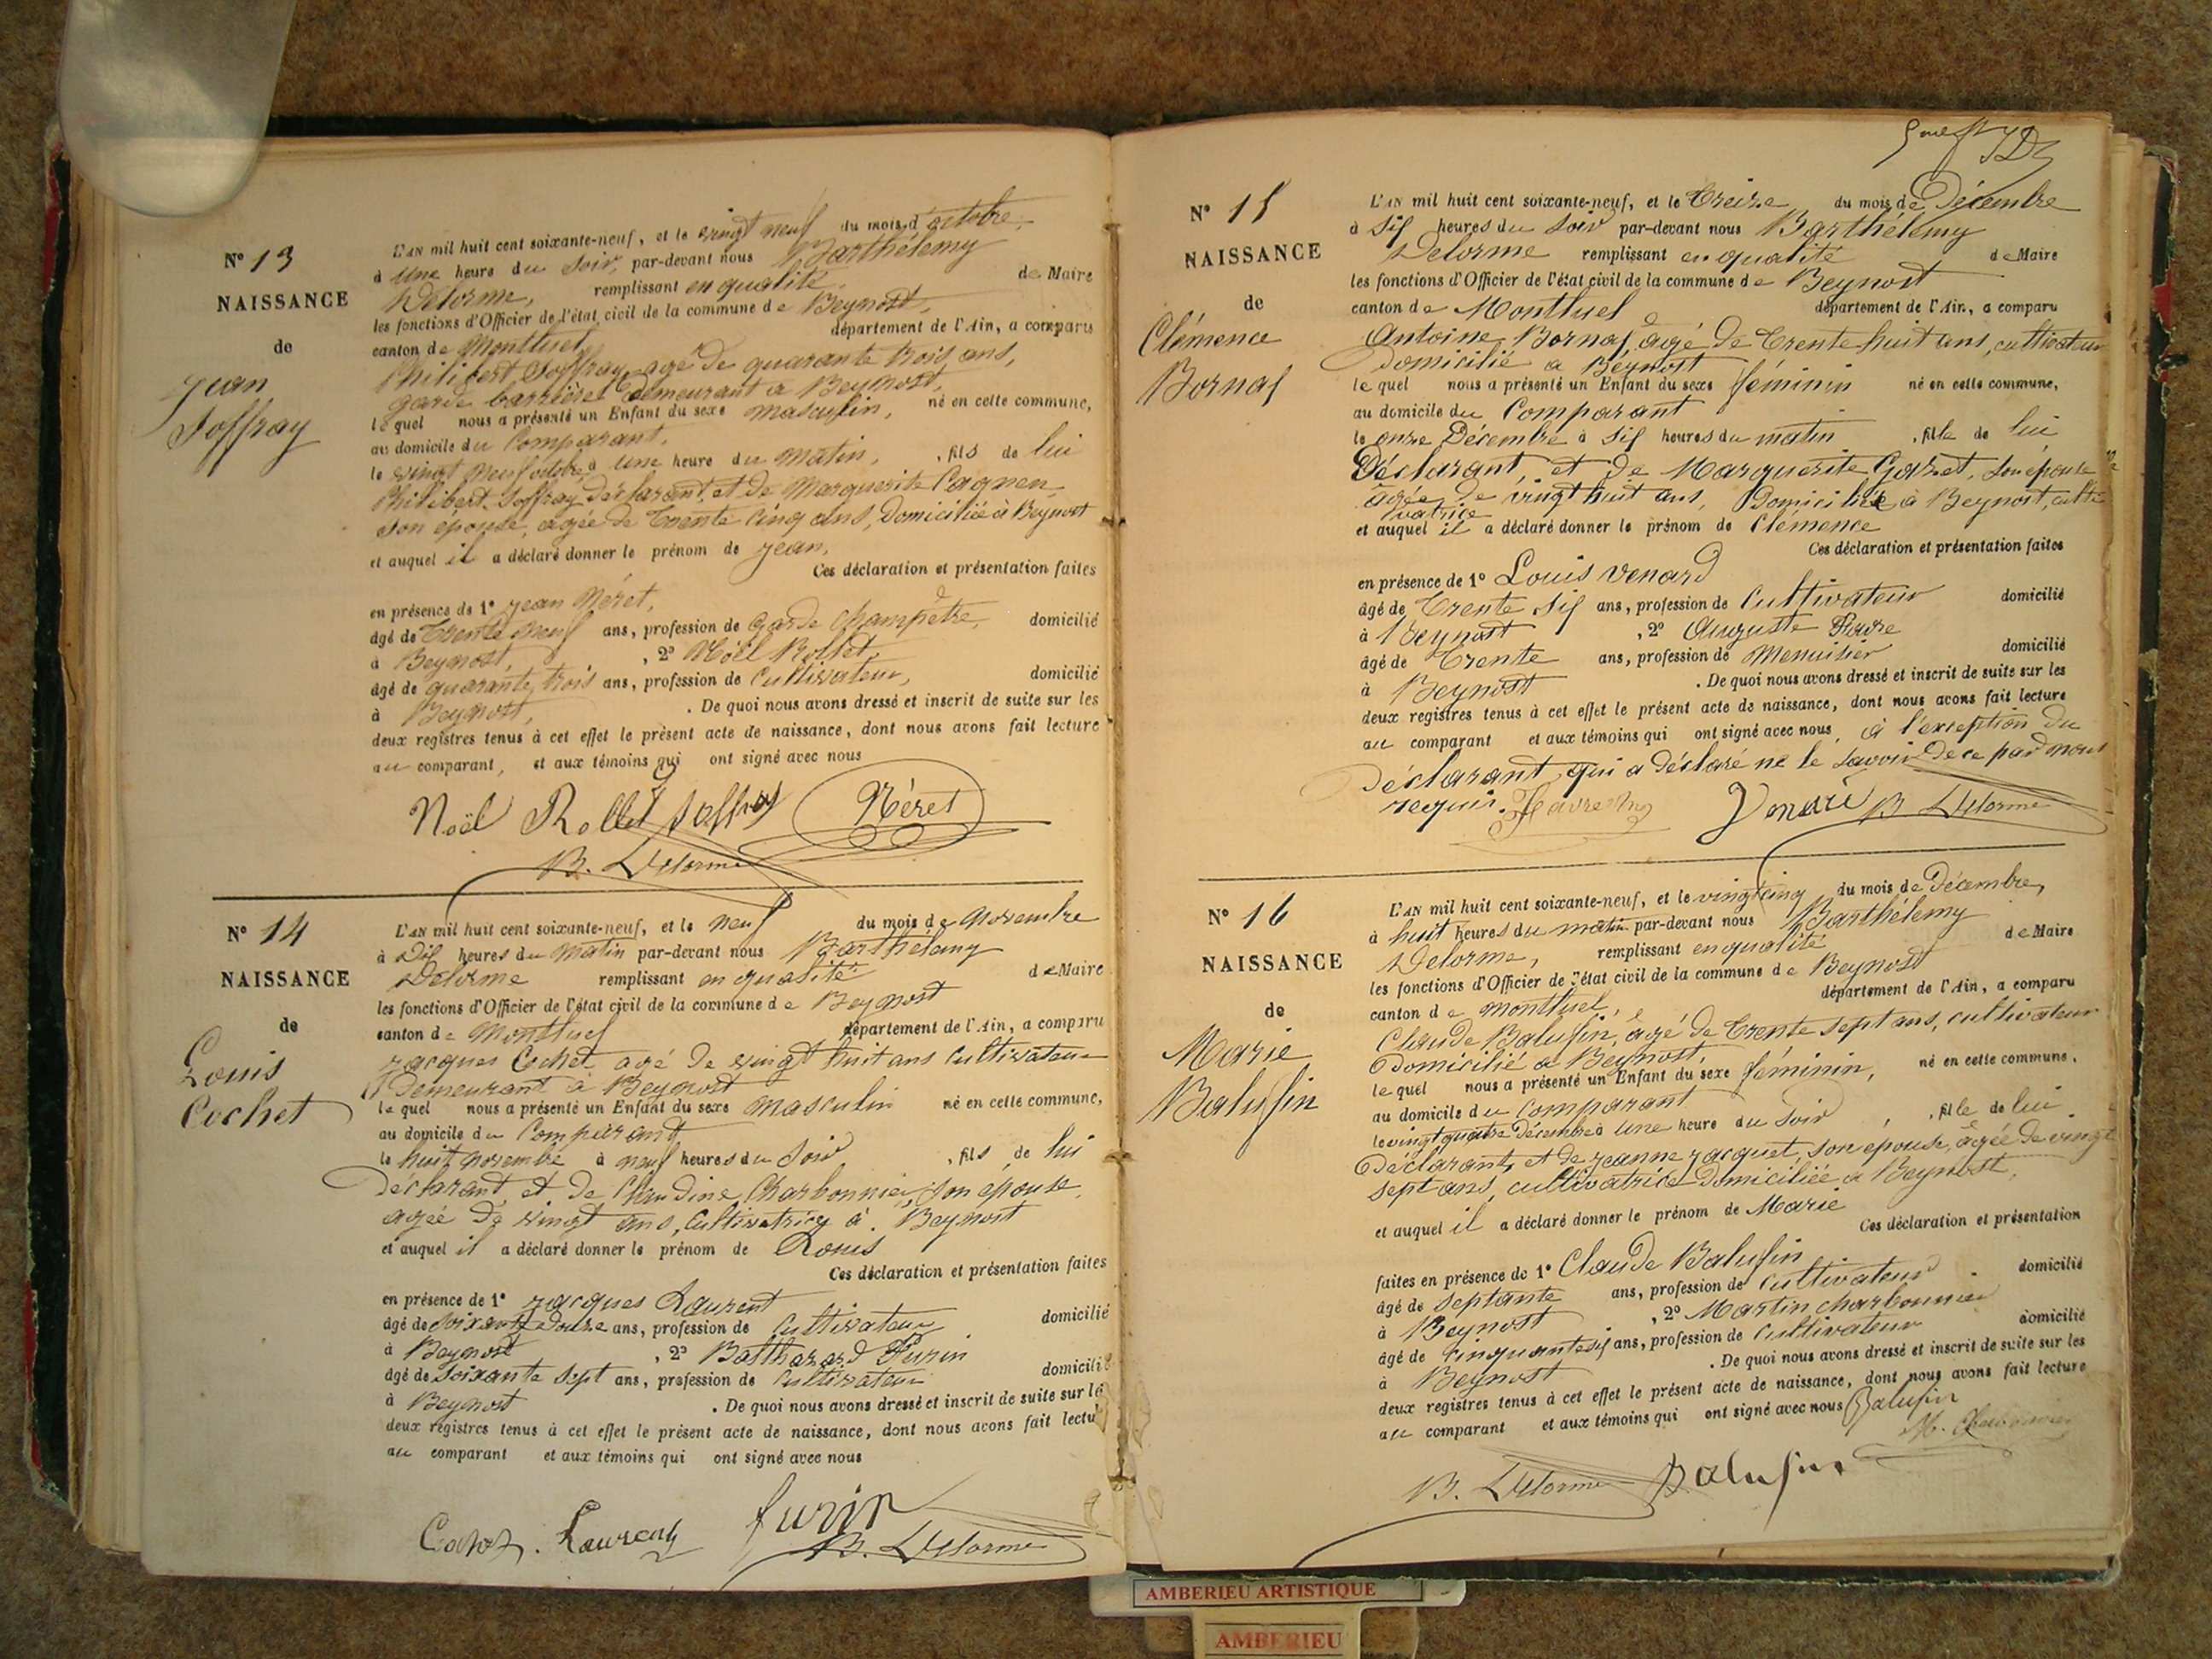 Nº 13
NAISSANCE
de
Jean
Joffray
L'AN mil huit cent soixante-neuf, et le vingt neuf du mois d'octobre,
à Une heure du Soir, par-devant nous Barthélemy
Delorme, remplissant en qualité de Maire
les fonctions d'Officier de l'état civil de la commune de Beynost,
canton de Montluel, département de l'Ain, a comparu
Philibert Joffray, agé de quarante trois ans,
garde barrière demeurant à Beynost,
le quel nous a présenté un Enfant du sexe masculin, né en cette commune,
au domicile du Comparant,
le vingt neuf octobre à Une heure du matin, fils de lui
Philibert Joffray déclarant, et de Marguerite Cagnen,
son épouse, agée de trente cinq ans, Domiciliée à Beynost
et auquel il a déclaré donner le prénom de Jean,
Ces déclaration et présentation faites
en présence de 1º Jean Néret,
âgé de trente neuf ans, profession de garde champêtre, domicilié
à Beynost, , 2º Noël Rollet,
âgé de quarante trois ans, profession de Cultivateur, domicilié
à Beynost, . De quoi nous avons dressé et inscrit de suite sur les
deux registres tenus à cet effet le présent acte de naissance, dont nous avons fait lecture
au comparant, et aux témoins qui ont signé avec nous
Noël Rollet Joffray Néret
B. Delorme
Nº 14
NAISSANCE
de
Louis
Cochet
L'AN mil huit cent soixante-neuf, et le neuf du mois de Novembre
à Dix heures du matin par-devant nous Barthélemy
Delorme remplissant en qualité de Maire
les fonctions d'Officier de l'état civil de la commune de Beynost
canton de Montluel département de l'Ain, a comparu
Jacques Cochet agé de vingt huit ans Cultivateur
Demeurant à Beynost
le quel nous a présenté un Enfant du sexe masculin né en cette commune,
au domicile du Comparant
le huit novembre à neuf heures du Soir , fils de lui
déclarant, et de Claudine Charbonnier, son épouse,
agée de vingt ans, Cultivatrice à Beynost
et auquel il a déclaré donner le prénom de Louis
Ces déclaration et présentation faites
en présence de 1º Jacques Laurent
âgé de soixante Douze ans, profession de Cultivateur domicilié
à Beynost , 2º Balthazard Furin
âgé de soixante sept ans, profession de Cultivateur domicilié
à Beynost . De quoi nous avons dressé et inscrit de suite sur le
deux registres tenus à cet effet le présent acte de naissance, dont nous avons fait lectu
au comparant et aux témoins qui ont signé avec nous
Cochet. Laurent furin
B. Delorme
Nº 15
NAISSANCE
de
Clémence
Bornaf
L'AN mil huit cent soixante-neuf, et le treize du mois de Décembre
à Six heures du Soir par-devant nous Barthélemy
Delorme remplissant en qualité de Maire
les fonctions d'Officier de l'état civil de la commune de Beynost
canton de Montluel département de l'Ain, a comparu
Antoine Bornaf, agé de trente huit ans, cultivateur
domicilié à Beynost
le quel nous a présenté un Enfant du sexe féminin né en cette commune,
au domicile du Comparant
le onze Décembre à Six heures du matin , fille de lui
Déclarant, et de Marguerite Garret, son épouse
agée de vingt huit ans, Domiciliée à Beynost, culti
vatrice
et auquel il a déclaré donner le prénom de Clémence
Ces déclaration et présentation faites
en présence de 1º Louis Venard
âgé de trente six ans, profession de Cultivateur domicilié
à Beynost , 2º Auguste Favre
âgé de trente ans, profession de Menuisier domicilié
à Beynost . De quoi nous avons dressé et inscrit de suite sur les
deux registres tenus à cet effet le présent acte de naissance, dont nous avons fait lecture
au comparant et aux témoins qui ont signé avec nous, à l'exception du
Déclarant qui a déclaré ne le savoir de ce par nous
requis. Favre Venard B. Delorme
Nº 16
NAISSANCE
de
Marie
Balufin
L'AN mil huit cent soixante-neuf, et le vingt cinq du mois de Décembre,
à huit heures du matin par-devant nous Barthélemy
Delorme, remplissant en qualité de Maire
les fonctions d'Officier de l'état civil de la commune de Beynost
canton de Montluel, département de l'Ain, a comparu
Claude Balufin, agé de trente sept ans, cultivateur
domicilié à Beynost,
le quel nous a présenté un Enfant du sexe féminin, né en cette commune,
au domicile du Comparant
le vingt quatre Décembre à Une heure du Soir , fille de lui
Déclarant, et de Jeanne Jacquet, son épouse, agée de vingt
sept ans, cultivatrice domiciliée à Beynost,
et auquel il a déclaré donner le prénom de Marie
Ces déclaration et présentation
faites en présence de 1º Claude Balufin
âgé de septante ans, profession de Cultivateur domicilié
à Beynost , 2º Martin Charbonnier
âgé de Cinquante six ans, profession de Cultivateur domicilié
à Beynost . De quoi nous avons dressé et inscrit de suite sur les
deux registres tenus à cet effet le présent acte de naissance, dont nous avons fait lecture
au comparant et aux témoins qui ont signé avec nous Balufin
M. Charbonnier
B. Delorme Balufin
AMBERIEU ARTISTIQUE
AMBERIEU